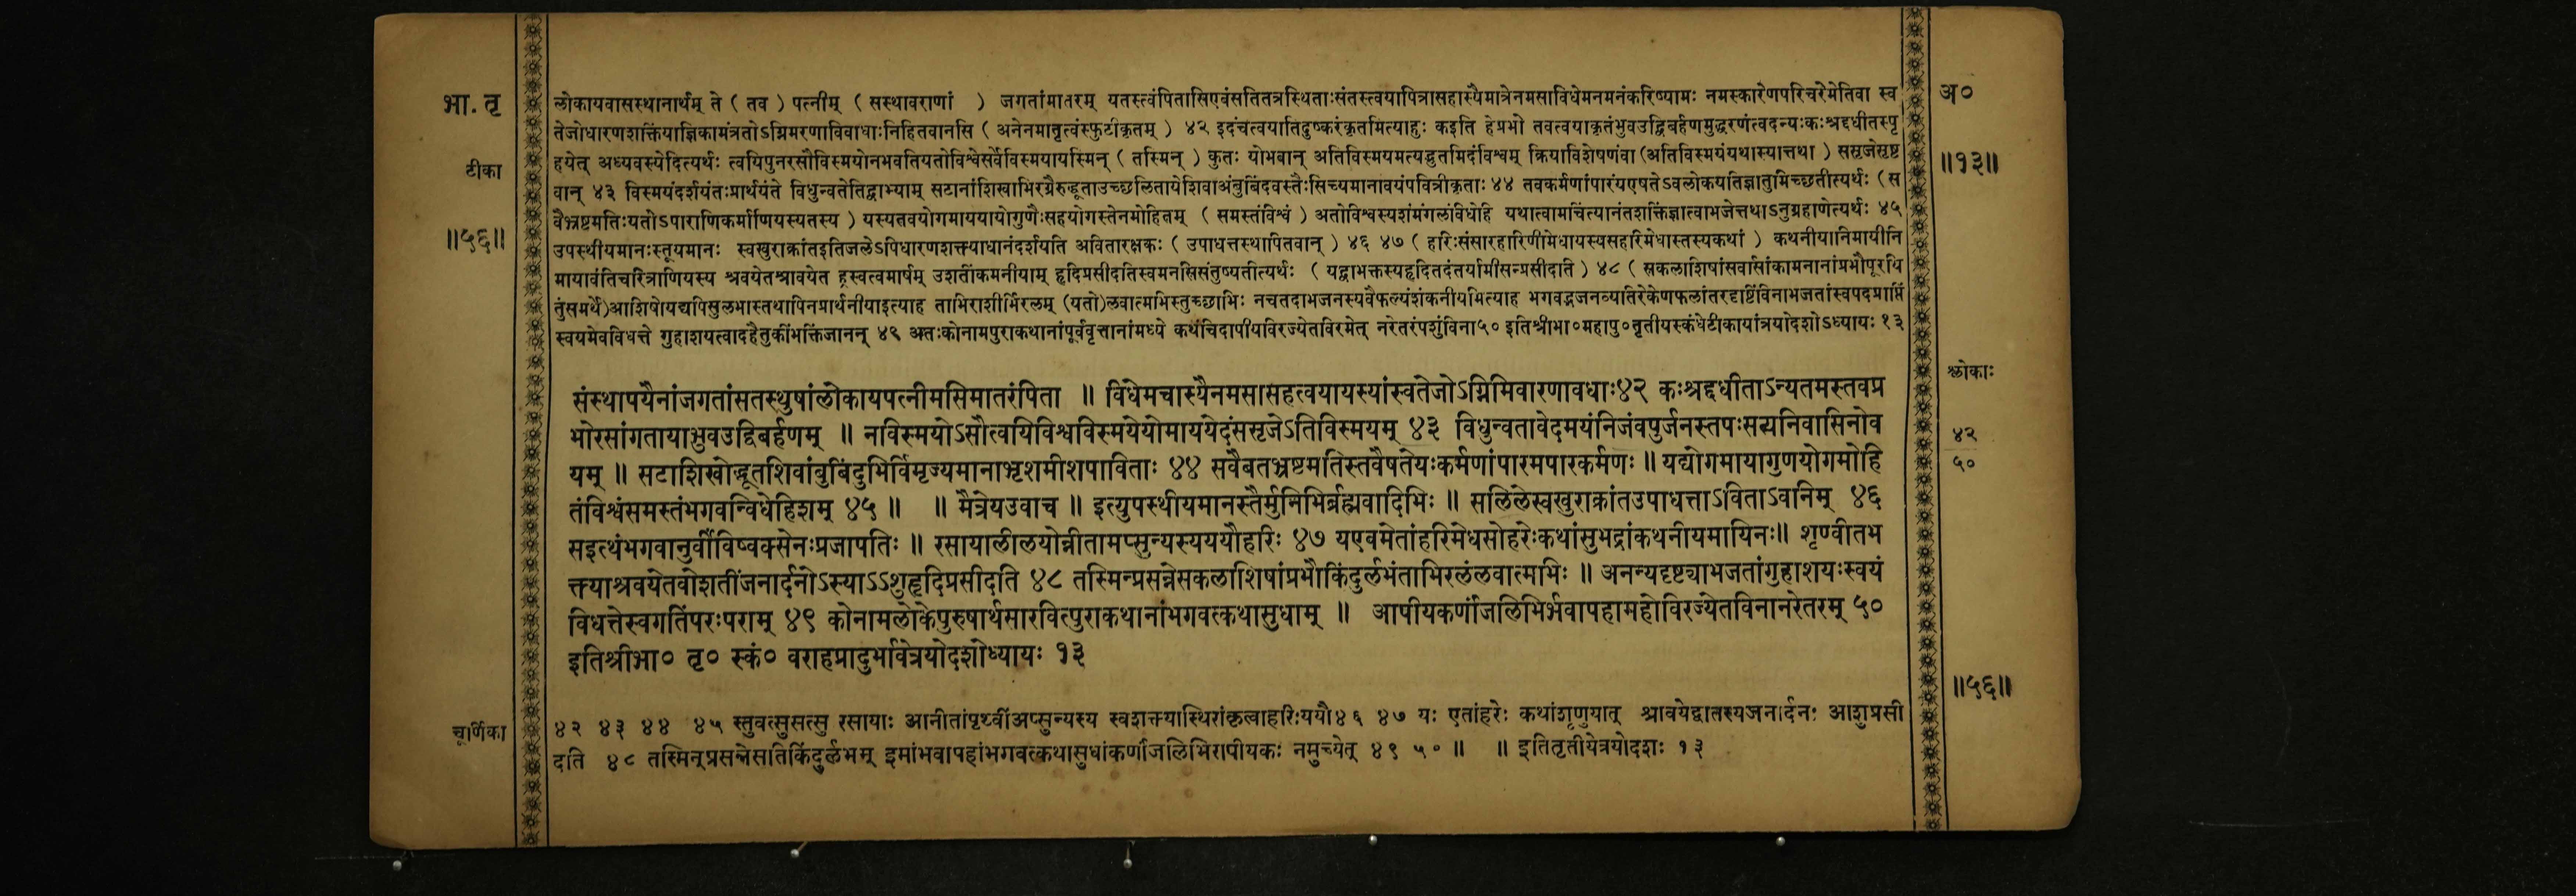 भा. तृ
टीका
॥५६॥
लोकायवासस्थानार्थम् ते ( तव ) पत्नीम् ( सस्थावराणां ) जगतांमातरम् यतस्त्वंपितासिएवंसतितत्रस्थिताःसंतस्त्वयापित्रासहास्यैमात्रेनमसाविधेमनमनंकरिष्यामः नमस्कारेणपरिचरेमेतिवा स्व
तेजोधारणशक्तिंयाज्ञिकामंत्रतोऽग्निमरणाविवाधाःनिहितवानसि ( अनेनमातृत्वंस्फुटीकृतम् ) ४२ इदंचत्वयातिदुष्करंकृतमित्याहुः कइति हेप्रभो तवत्वयाकृतंभुवउद्विबर्हणमुद्धरणंत्वदन्यःकःश्रद्दधीतस्पृ
हयेत् अध्यवस्येदित्यर्थः त्वयिपुनरसौविस्मयोनभवतियतोविश्वेसर्वेविस्मयायस्मिन् ( तस्मिन् ) कुतः योभवान् अतिविस्मयमत्यद्भुतमिदंविश्वम् क्रियाविशेषणंवा (अतिविस्मयंयथास्यात्तथा ) ससृजेसृष्ट
वान् ४३ विस्मयंदर्शयंतःप्रार्थयंते विधुन्वतेतिद्वाभ्याम् सटानांशिखाभिरग्रैरुद्धूताउच्छलितायेशिवाअंबुबिंदवस्तैःसिच्यमानावयंपवित्रीकृताः ४४ तवकर्मणांपारंयएषतेऽवलोकयतिज्ञातुमिच्छतीत्यर्थः (स
वैभ्रष्टमतिःयतोऽपाराणिकर्माणियस्यतस्य ) यस्यतवयोगमाययायोगुणैःसहयोगस्तेनमोहितम् ( समस्तंविश्वं ) अतोविश्वस्यशंमंगलंविधेहि यथात्वामचिंत्यानंतशक्तिंज्ञात्वाभजेत्तथाऽनुग्रहाणेत्यर्थः ४५
उपस्थीयमानःस्तूयमानः स्वखुराक्रांतइतिजलेऽपिधारणशक्त्याधानंदर्शयति अवितारक्षकः ( उपाधत्तस्थापितवान् ) ४६ ४७ ( हरिःसंसारहारिणीमेधायस्यसहरिमेधास्तस्यकथां ) कथनीयानिमायीनि
मायावंतिचरित्राणियस्य श्रवयेतश्रावयेत ह्रस्वत्वमार्षम् उशतींकमनीयाम् हृदिप्रसीदतिस्वमनसिसंतुष्यतीत्यर्थः ( यद्वाभक्तस्यहृदितदंतर्यामीसन्प्रसीदाति ) ४८ ( सकलाशिषांसर्वासांकामनानांप्रभौपूरयि
तुंसमर्थे)आशिषोयद्यपिसुलभास्तथापिनप्रार्थनीयाइत्याह ताभिराशीर्भिरलम् (यतो)लवात्मभिस्तुच्छाभिः नचतदाभजनस्यवैफल्यंशंकनीयमित्याह भगवद्भजनव्यतिरेकेणफलांतरदृष्टिंविनाभजतांस्वपदप्राप्तिं
स्वयमेवविधत्ते गुहाशयत्वादहैतुकींभक्तिंजानन् ४९ अतःकोनामपुराकथानांपूर्ववृत्तानांमध्ये कथंचिदापीयविरज्येतविरमेत् नरेतरंपशुंविना५० इतिश्रीभा०महापु०तृतीयस्कंधेटीकायांत्रयोदशोऽध्यायः १३
अ०
॥१३॥
श्लोकाः
४२
५०
॥५६॥
संस्थापयैनांजगतांसतस्थुषांलोकायपत्नीमसिमातरंपिता ॥ विधेमचास्यैनमसासहत्वयायस्यांस्वतेजोऽग्निमिवारणावधाः४२ कःश्रद्दधीताऽन्यतमस्तवप्र
भोरसांगतायाभुवउद्विबर्हणम् ॥ नविस्मयोऽसौत्वयिविश्वविस्मयेयोमाययेदंससृजेऽतिविस्मयम् ४३ विधुन्वतावेदमयंनिजंवपुर्जनस्तपःसत्यनिवासिनोव
यम् ॥ सटाशिखोद्धूतशिवांबुबिंदुभिर्विमृज्यमानाभृशमीशपाविताः ४४ सवैबतभ्रष्टमतिस्तवैषतेयःकर्मणांपारमपारकर्मणः ॥ यद्योगमायागुणयोगमोहि
तंविश्वंसमस्तंभगवन्विधेहिशम् ४५ ॥ ॥ मैत्रेयउवाच ॥ इत्युपस्थीयमानस्तैर्मुनिभिर्ब्रह्मवादिभिः ॥ सलिलेस्वखुराक्रांतउपाधत्ताऽविताऽवनिम् ४६
सइत्थंभगवानुर्वीविष्वक्सेनःप्रजापतिः ॥ रसायालीलयोन्नीतामप्सुन्यस्यययौहरिः ४७ यएवमेतांहरिमेधसोहरेःकथांसुभद्रांकथनीयमायिनः॥ शृण्वीतभ
क्त्याश्रवयेतवोशतींजनार्दनोऽस्याऽऽशुहृदिप्रसीदति ४८ तस्मिन्प्रसन्नेसकलाशिषांप्रभौकिंदुर्लभंताभिरलंलवात्मभिः ॥ अनन्यदृष्ट्याभजतांगुहाशयःस्वयं
विधत्तेस्वगतिंपरःपराम् ४९ कोनामलोकेपुरुषार्थसारवित्पुराकथानांभगवत्कथासुधाम् ॥ आपीयकर्णांजलिभिर्भवापहामहोविरज्येतविनानरेतरम् ५०
इतिश्रीभा० तृ० स्कं० वराहप्रादुर्भावेत्रयोदशोध्यायः १३
चूर्णिका
४२ ४३ ४४ ४५ स्तुवत्सुसत्सु रसायाः आनीतांपृथ्वींअप्सुन्यस्य स्वशक्त्यास्थिरांकृत्वाहरिःययौ४६ ४७ यः एतांहरेः कथांशृणुयात् श्रावयेद्वातस्यजनार्दनः आशुप्रसी
दति ४८ तस्मिन्प्रसन्नेसतिकिंदुर्लभम् इमांभवापहांभगवत्कथासुधांकर्णांजलिभिरापीयकः नमुच्येत् ४९ ५० ॥ ॥ इतितृतीयेत्रयोदशः १३